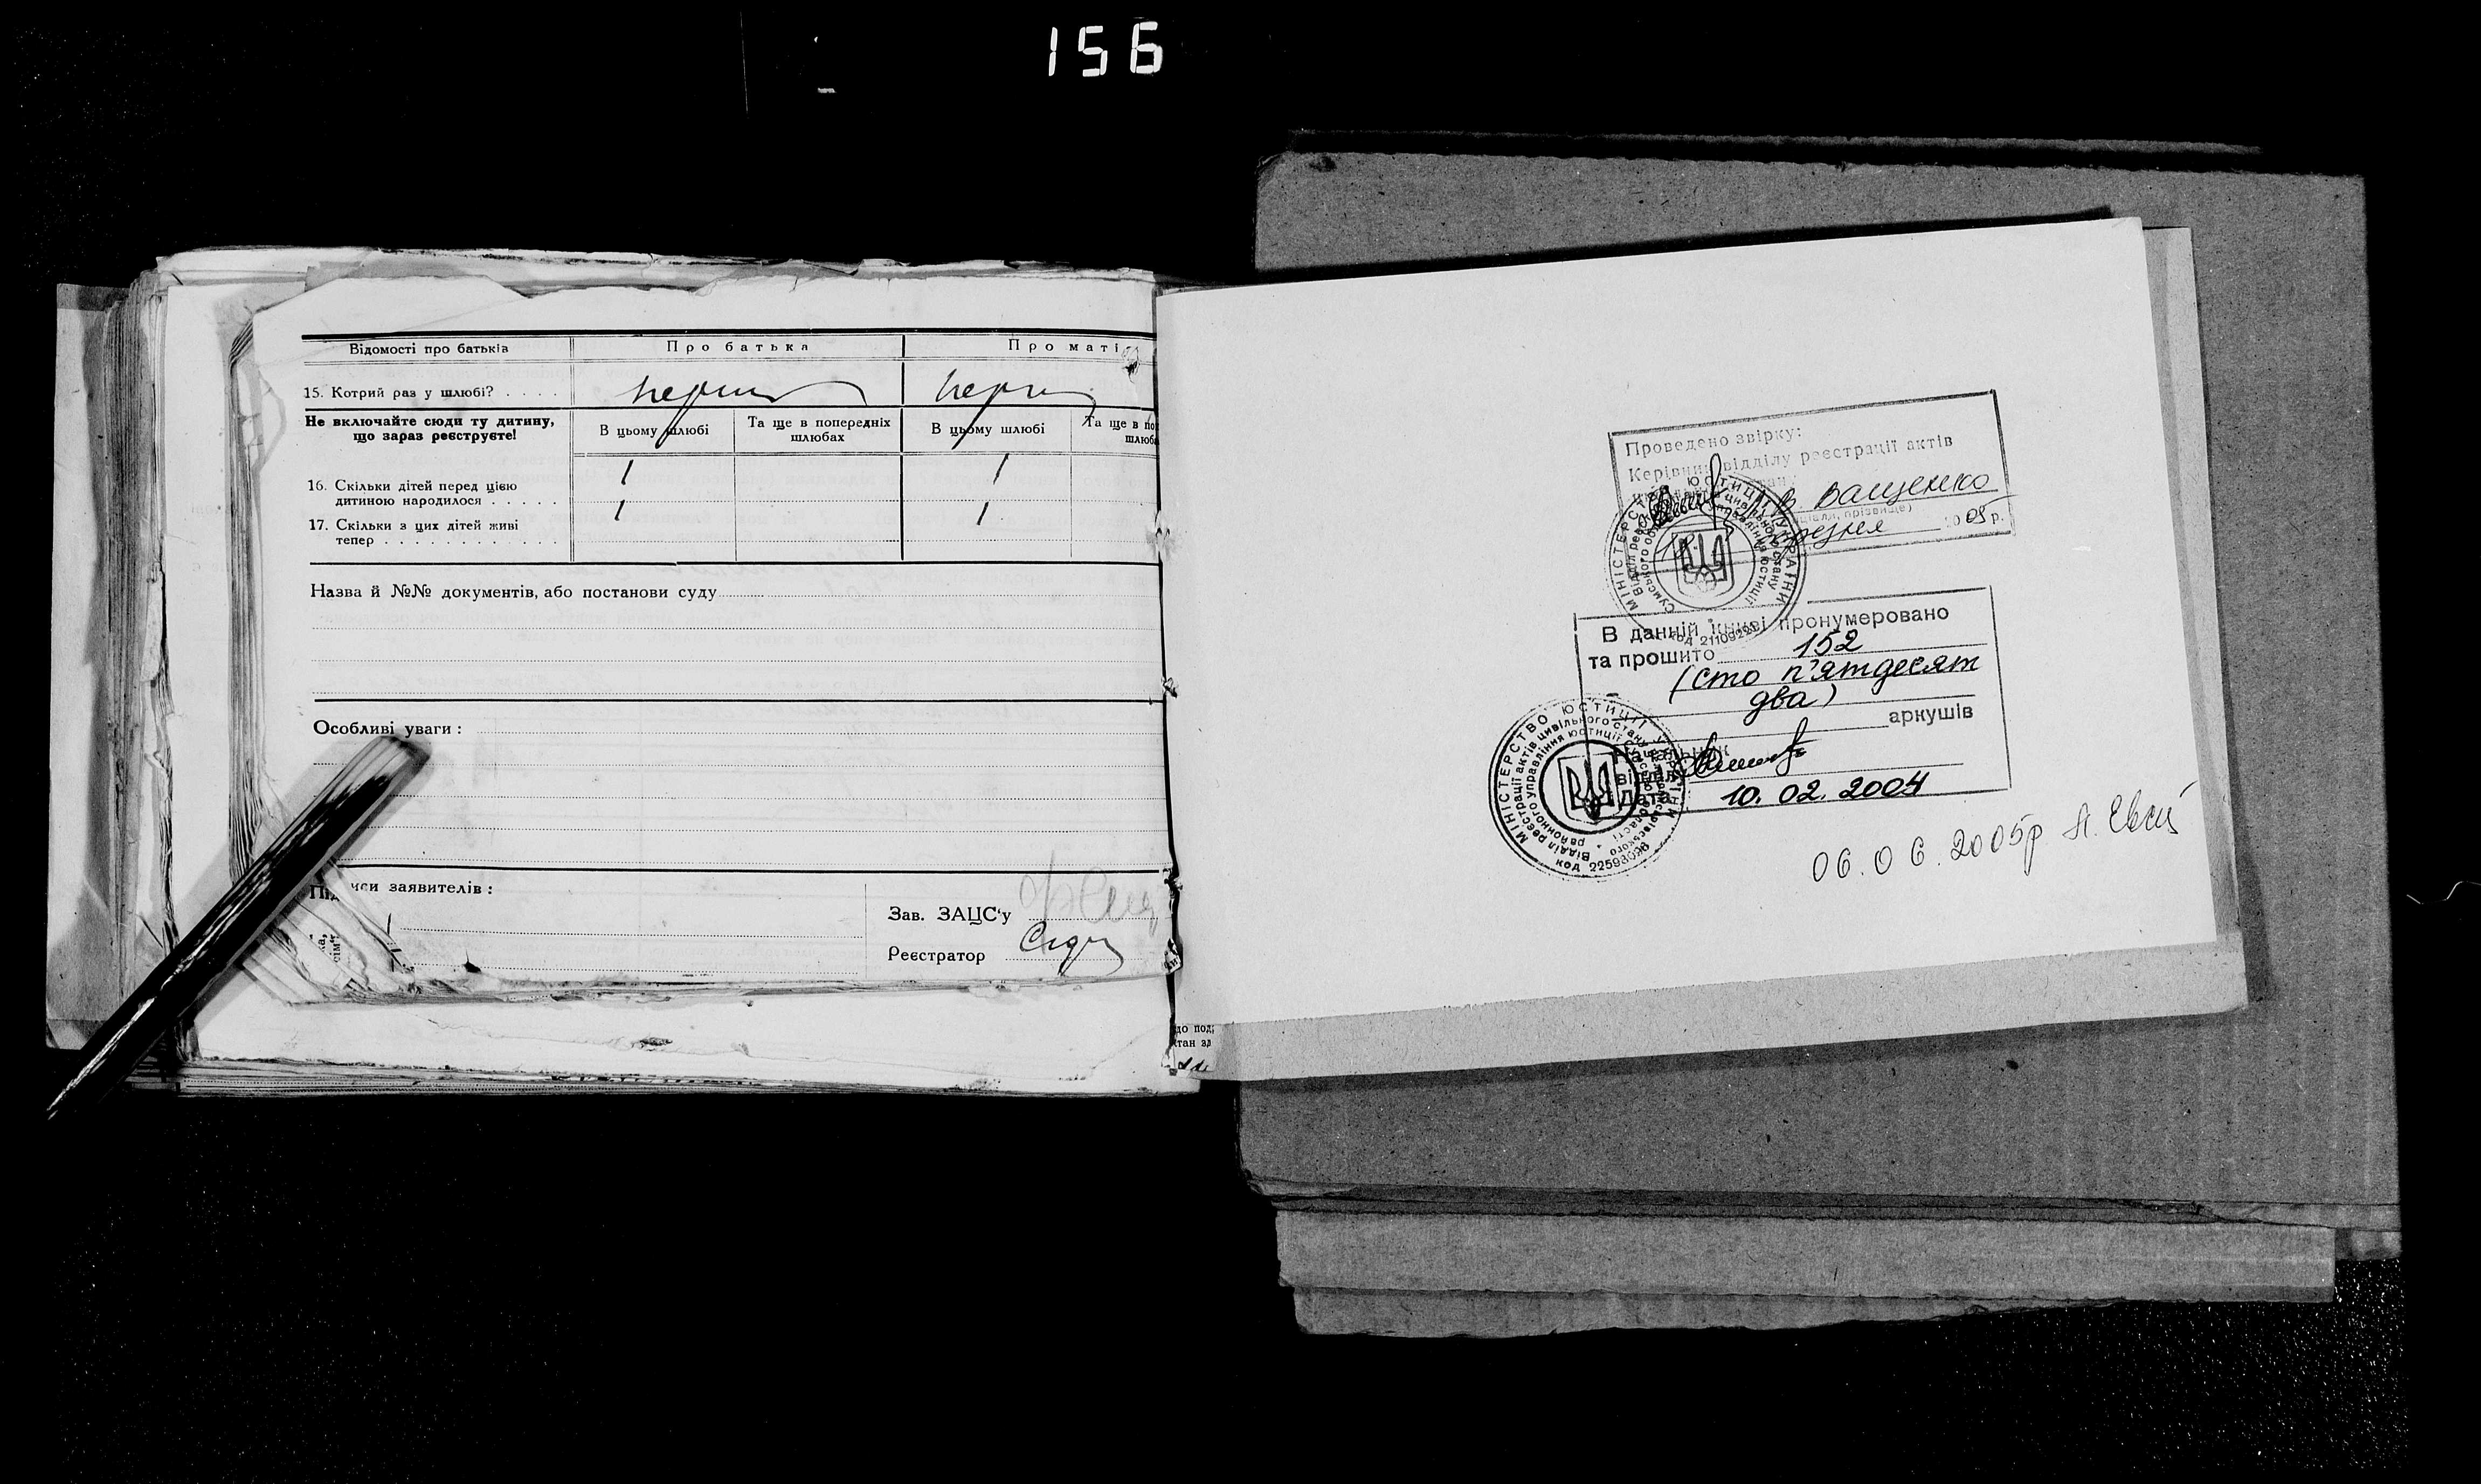 156
Відомості про батьків
Про батька
Про маті
15. Котрий раз у шлюбі? . . . .
перш
перш
Не включайте сюди ту дитину,
що зараз реєструєте!
В цьому шлюбі
Та ще в попередніх
шлюбах
В цьому шлюбі
Та ще в по
шлюба
16. Скільки дітей перед цією
дитиною народилося . . . . .
1
1
17. Скільки з цих дітей живі
тепер . . . . . . . . . . . .
1
1
Назва й №№ документів, або постанови суду
Особливі уваги :
писи заявителів :
Зав. ЗАЦС'у
Реєстратор
Проведено звірку:
Керівник відділу реєстрації актів
В. Ващенко
(ініціали, прізвище)
2009 р.
МІНІСТЕРСТВО ЮСТИЦІЇ УКРАЇНИ
код 21109229
В данній книзі пронумеровано
та прошито 152
(сто п'ятдесят
два)
аркушів
Начальник
відділу
дата 10. 02. 2004
МІНІСТЕРСТВО ЮСТИЦІЇ УКРАЇНИ
Відділ реєстрації актів цивільного стану
районного управління юстиції Сумської області
код 22598098
06.06.2005р
до под
стан зд